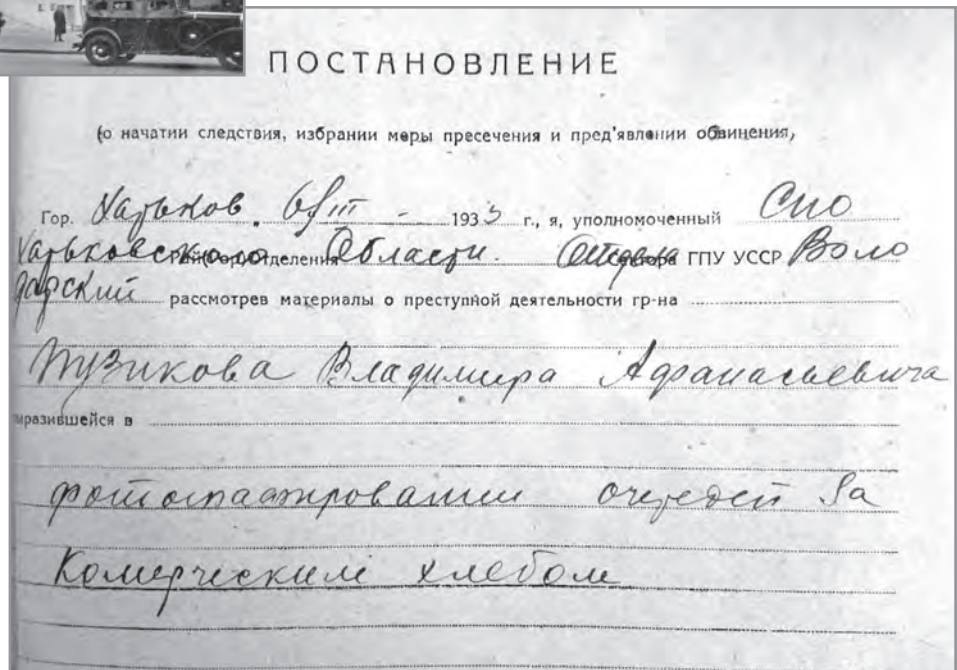 ПОСТАНОВЛЕНИЕ
(о начатии следствия, избрании меры пресечения и пред'явлении обвинения,
Гор. Харьков. 1933 г., я, уполномоченный СПО
Харьковского Рай(Гор)отделения Области. Отдела ГПУ УССР Воло
дарский рассмотрев материалы о преступной деятельности гр-на
Пузикова Владимира Афанасьевича
выразившейся в
очередей за
Комерческим хлебом